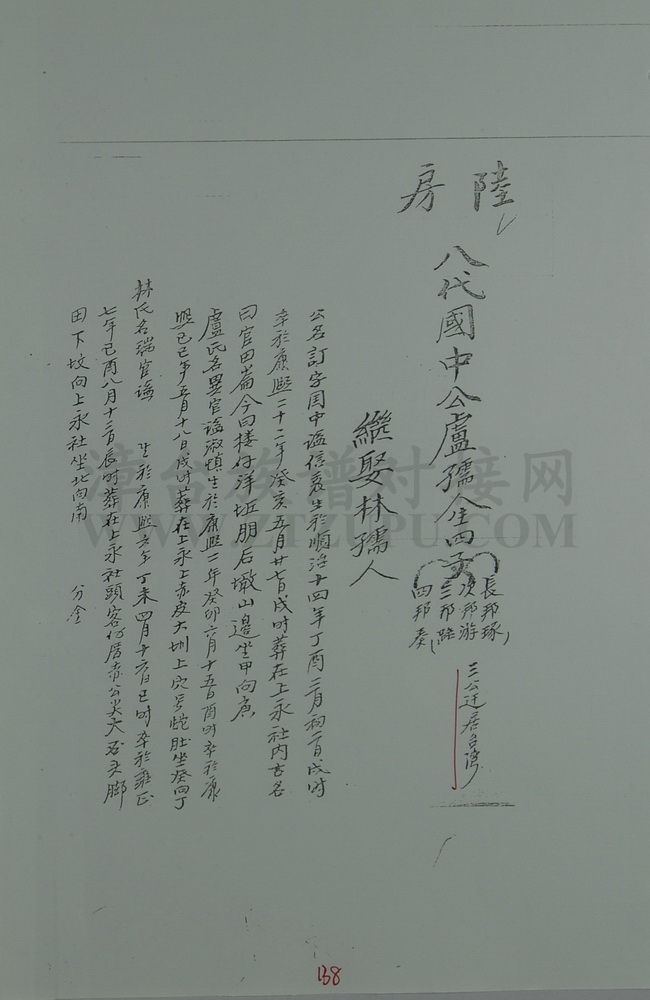 陸房
八代國中公盧孺人生四子
長邦琢
次邦游
三邦路
四邦奏
三公迁居台湾
繼娶林孺人
公名訂字国中谥信义生於順治十四年丁酉三月初二日戌时
卒於康熙二十二年癸亥五月廿七日戌时葬在上永社内古名
曰官田崙今曰楼仔洋坵朋后墩山邊坐甲向庚
盧氏名異官谥淑慎生於康熙二年癸卯六月十五日酉时卒於康
熙己巳年五月十八日戌时葬在上永上赤皮大圳上穴号蛇肚坐癸向丁
林氏名瑞官谥 生於康熙六年丁未四月十六日巳时卒於雍正
七年己酉八月十三日辰时葬在上永社頭客仔厝赤公尖大石头脚
田下坟向上永社坐北向南 分金
138
漳台族谱对接网
WWW.ZTZUPU.COM